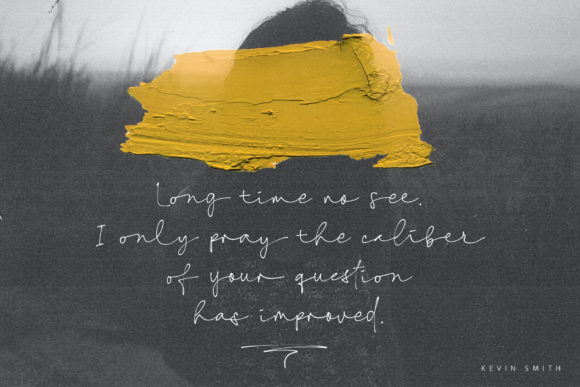 Long time no see.
I only pray the caliber
of your question
has improved.
KEVIN SMITH